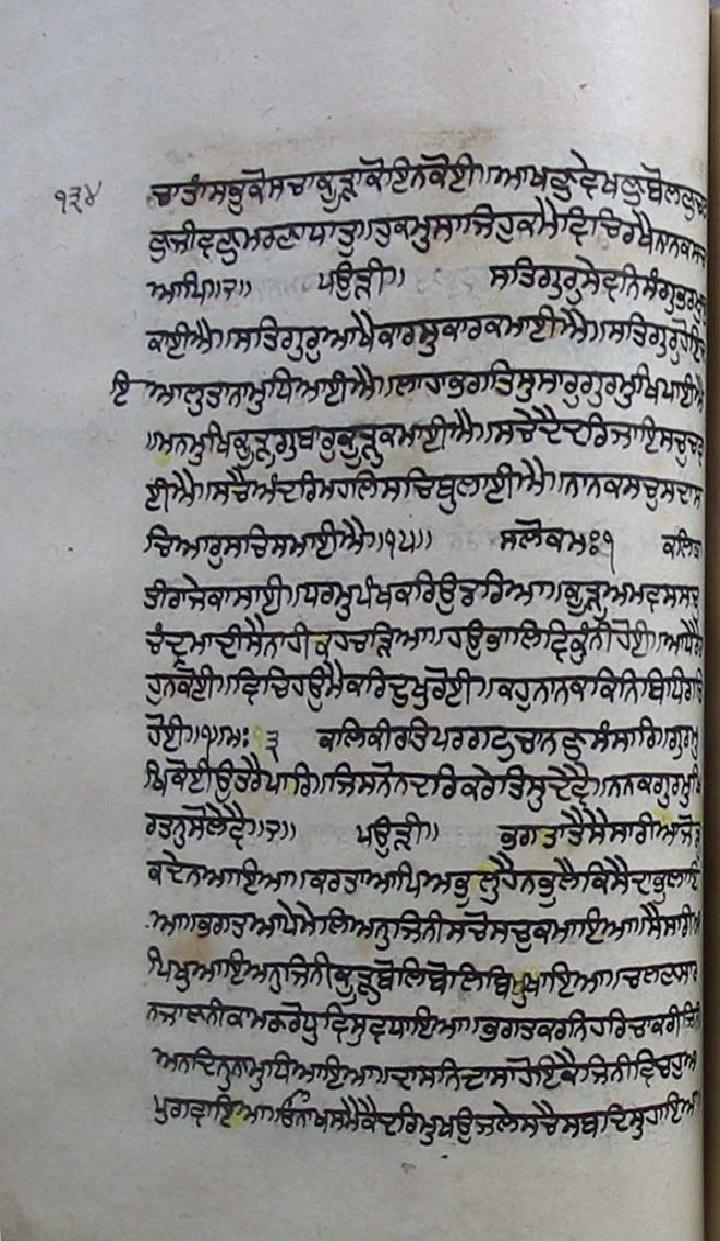 ੧੩੪
ਚਾਤਾਂਸਭੁਕੋਸਚਾਕੂੜਾਕੋਇਨਕੋਈ॥ਆਖਣੁਵੇਖਣੁਬੋਲਣੁਚਲ
ਣੁਜੀਵਣੁਮਰਣਾਧਾਤੁ॥ਹੁਕਮੁਸਾਜਿਹੁਕਮੈਵਿਚਿਰਖੈਨਾਨਕਸਚਾ
ਆਪਿ॥੨॥ ਪਉੜੀ॥ ਸਤਿਗੁਰੁਸੇਵਨਿਸੰਗੁਭਰਮੁਚੁ
ਕਾਈਐ॥ਸਤਿਗੁਰੁਆਖੈਕਾਰਸੁਕਾਰਕਮਾਈਐ॥ਸਤਿਗੁਰੁਹੋਇਦ
ਇ ਆਲੁਤਾਨਾਮੁਧਿਆਈਐ॥ਲਾਹਾਭਗਤਿਸੁਸਾਰੁਗੁਰਮੁਖਿਪਾਈਐ
॥ਮਨਮੁਖਿਕੂੜੁਗੁਬਾਰੁਕੂੜੁਕਮਾਈਐ॥ਸਚੇਦੈਦਰਿਜਾਇਸਚੁਚਵਾ
ਈਐ॥ਸਚੈਅੰਦਰਿਮਹਲਿਸਚਿਬੁਲਾਈਐ॥ਨਾਨਕਸਚੁਸਦਾਸ
ਚਿਆਰੁਸਚਿਸਮਾਈਐ॥੧੫॥ ਸਲੋਕਮਃ੧ ਕਲਿਕਾ
ਤੀਰਾਜੇਕਾਸਾਈ॥ਧਰਮੁਪੰਖਕਰਿਉਡਰਿਆ॥ਕੂੜੁਅਮਵਸਸਚੁ
ਚੰਦ੍ਰਮਾਦੀਸੈਨਾਹੀਕਹਚੜਿਆ॥ਹਉਭਾਲਿਵਿਕੁੰਨੀਹੋਈ॥ਆਧੇਰੈਰਾ
ਹੁਨਕੋਈ॥ਵਿਚਿਹਉਮੈਕਰਿਦੁਖੁਰੋਈ॥ਕਹੁਨਾਨਕਕਿਨਿਬਿਧਿਗਤਿ
ਹੋਈ॥੧॥ਮਃ੩ ਕਲਿਕੀਰਤਿਪਰਗਟੁਚਾਨਣੁਸੰਸਾਰਿ॥ਗੁਰਮੁ
ਖਿਕੋਈਉਤਰੈਪਾਰਿ॥ਜਿਸਨੋਨਦਰਿਕਰੇਤਿਸੁਦੇਵੈ॥ਨਨਕਗੁਰਮੁਖਿ
ਰਤਨੁਸੋਲੇਵੈ॥੨॥ ਪਉੜੀ॥ ਭਗਤਾਤੈਸੈਸਾਰੀਆਜੋੜੁ
ਕਦੇਨਆਇਆ॥ਕਰਤਾਆਪਿਅਭੁਲੁਹੈਨਭੁਲੈਕਿਸੈਦਾਭੁਲਾਇ
ਆ॥ਭਗਤਆਪੇਮੇਲਿਅਨੁਜਿਨੀਸਚੋਸਚੁਕਮਾਇਆ॥ਸੈਸਾਰੀਆ
ਪਿਖੁਆਇਅਨੁਜਿਨੀਕੂੜੁਬੋਲਿਬੋਲਿਬਿਖੁਖਾਇਆ॥ਚਲਣਸਾਰ
ਨਜਾਣਨੀਕਾਮਕਰੋਧੁਵਿਸੁਵਧਾਇਆ॥ਭਗਤਕਰਨਿਹਰਿਚਾਕਰੀਜਿਨੀ
ਅਨਦਿਨੁਨਾਮੁਧਿਆਇਆ॥ਦਾਸਨਿਦਾਸਹੋਇਕੈਜਿਨੀਵਿਚਹੁਆ
ਪੁਗਵਾਇਆ॥ਓਨਾਖਸਮੈਕੈਦਰਿਮੁਖਉਜਲੇਸਚੈਸਬਦਿਸੁਹਾਇਆ